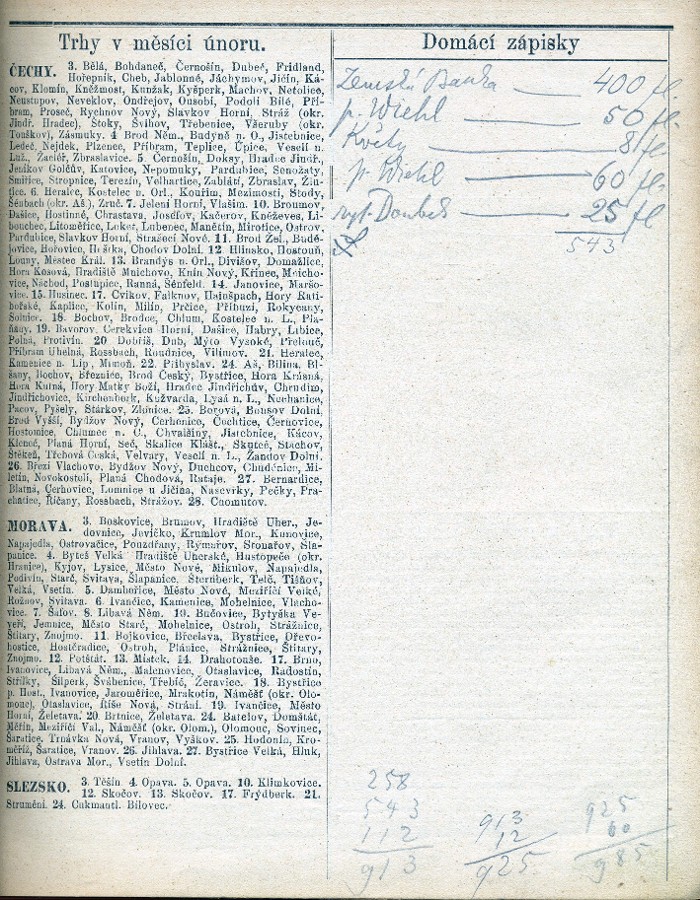 Trhy v měsíci únoru.
ČECHY. 3. Bělá, Bohdaneč, Černošín, Dubeč, Fridland,
Hořepník, Cheb, Jablonné, Jáchymov, Jičín, Ká-
cov, Klomín, Kněžmost, Kunžak, Kyšperk, Machov, Netolice,
Neustupov, Neveklov, Ondřejov, Onsobí, Podolí Bílé, Pří-
bram, Proseč, Rychnov Nový, Slavkov Horní, Stráž (okr.
Jindř. Hradec), Štoky, Švihov, Třebenice, Všeruby (okr.
Touškov), Zásmuky. 4. Brod Něm., Budyně n. O., Jistebnice,
Ledeč, Nejdek, Plzenec, Příbram, Teplice, Úpice, Veselí n.
Luž., Žacléř, Zbraslavice. 5. Černošín, Doksy, Hradec Jindř.,
Jeníkov Golčův, Katovice, Nepomuky, Pardubice, Senožaty,
Smiřice, Stropnice, Terezín, Volhartice, Zablátí, Zbraslav, Žiu-
tice. 6. Heralec, Kostelec n. Orl., Kouřim, Mezimostí, Stody,
Šénbach (okr. Aš.), Zruč. 7. Jelení Horní, Vlašim. 10. Broumov,
Dašice, Hostinné, Chrastava, Josefov, Kačerov, Kněževes, Li-
bouchec, Litoměřice, Loket, Lubenec, Manětín, Mirotice, Ostrov,
Pardubice, Slavkov Horní, Strašecí Nové. 11. Brod Žel., Budě-
jovice, Hořovice, Chodov Dolní. 12. Hlinsko, Hostouň,
Louny, Městec Král. 13. Brandýs n. Orl., Divišov, Domažlice,
Hora Kosová, Hradiště Mnichovo, Knín Nový, Křinec, Mnicho-
vice, Náchod, Postupice, Ranná, Šénfeld. 14. Janovice, Maršo-
vice. 15. Husinec. 17. Cvikov, Falknov, Hainšpach, Hory Rati-
bořské, Kaplice, Kolín, Milín, Prčice, Přibuzi, Rokycany,
Solnice. 18. Bochov, Brodce, Chlum, Kostelec n. L., Pla-
ňany. 19. Bavorov, Cerekvice Horní, Dašice, Habry, Libice,
Polná, Protivín. 20. Dobříš, Dub, Mýto Vysoké, Přelouč,
Příbram Uhelná, Rossbach, Roudnice, Vilimov. 21. Heralec,
Kamenice n. Lip., Mimoň. 22. Přibyslav. 24. Aš, Bílina, Bl-
šany, Bochov, Březnice, Brod Český, Bystřice, Hora Krásná,
Hora Kutná, Hory Matky Boží, Hradec Jindřichův, Chrudim,
Jindřichovice, Kirchenberk, Kužvarda, Lysá n. L., Nechanice,
Pacov, Pyšely, Stárkov, Zlonice. 25. Borová, Bousov Dolní,
Brod Vyšší, Bydžov Nový, Cerhonice, Čechtice, Černovice,
Hostomice, Chlumec n. C., Chvalšiny, Jistebnice, Kácov,
Klenčí, Planá Horní, Seč, Skalice Klášt., Skuteč, Stachov,
Štěkeň, Třebová Česká, Velvary, Veselí n. L., Žandov Dolní.
26. Březí Vlachovo, Bydžov Nový, Duchcov, Chuděnice, Mi-
letín, Novokostelí, Planá Chodová, Rataje. 27. Bernardice,
Blatná, Cerhovice, Lomnice u Jičína, Nasevrky, Pečky, Pra-
chatice, Říčany, Rossbach, Strážov. 28. Chomutov.
MORAVA. 3. Boskovice, Brumov, Hradiště Uher., Je-
dovnice, Jevíčko, Krumlov Mor., Kunovice,
Napajedla, Ostrovačice, Pouzdřany, Rýmařov, Stonařov, Šla-
panice. 4. Byteš Velká, Hradiště Uherské, Hustopeče (okr.
Hranice), Kyjov, Lysice, Město Nové, Mikulov, Napajedla,
Podivín, Staré, Svitava, Šlapanice, Šternberk, Telč, Tišňov,
Velká, Vsetín. 5. Dambořice, Město Nové, Meziříčí Velké,
Rožnov, Svitava. 6. Ivančice, Kamenice, Mohelnice, Vlacho-
vice. 7. Šafov. 8. Libavá Něm. 10. Bučovice, Bytyška Ve-
veří, Jemnice, Město Staré, Mohelnice, Ostroh, Strážnice,
Štitary, Znojmo. 11. Bojkovice, Břeclava, Bystřice, Dřevo-
hostice, Hostěradice, Ostroh, Plánice, Strážnice, Štitary,
Znojmo. 12. Potštát. 13. Místek. 14. Drahotouše. 17. Brno,
Ivanovice, Libavá Něm., Malenovice, Otaslavice, Radostín,
Střílky, Šilperk, Švábenice, Třebíč, Žeravice. 18. Bystřice
p. Host., Ivanovice, Jaroměřice, Mrakotín, Náměšť (okr. Olo-
mouc), Otaslavice, Říše Nová, Strání. 19. Ivančice, Město
Horní, Želetava. 20. Brtnice, Želetava. 24. Batelov, Domštát,
Měřín, Meziříčí Val., Náměšť (okr. Olom.), Olomouc, Sovinec,
Šaratice, Trnávka Nová, Vranov, Vyškov. 25. Hodonín, Kro-
měříž, Šaratice, Vranov. 26. Jihlava. 27. Bystřice Velká, Hluk,
Jihlava, Ostrava Mor., Vsetín Dolní.
SLEZSKO. 3. Těšín. 4. Opava. 5. Opava. 10. Klimkovice.
12. Skočov. 13. Skočov. 17. Frýdberk. 21.
Strumění. 24. Cukmantl. Bílovec.
Domácí zápisky
Zemská Banka — 400 fl.
p. Wiehl — 50 fl
Květy — 8 fl
p. Wiehl — 60 fl.
Doubek — 25 fl
543
258
543
112
913
913
12
925
925
60
985